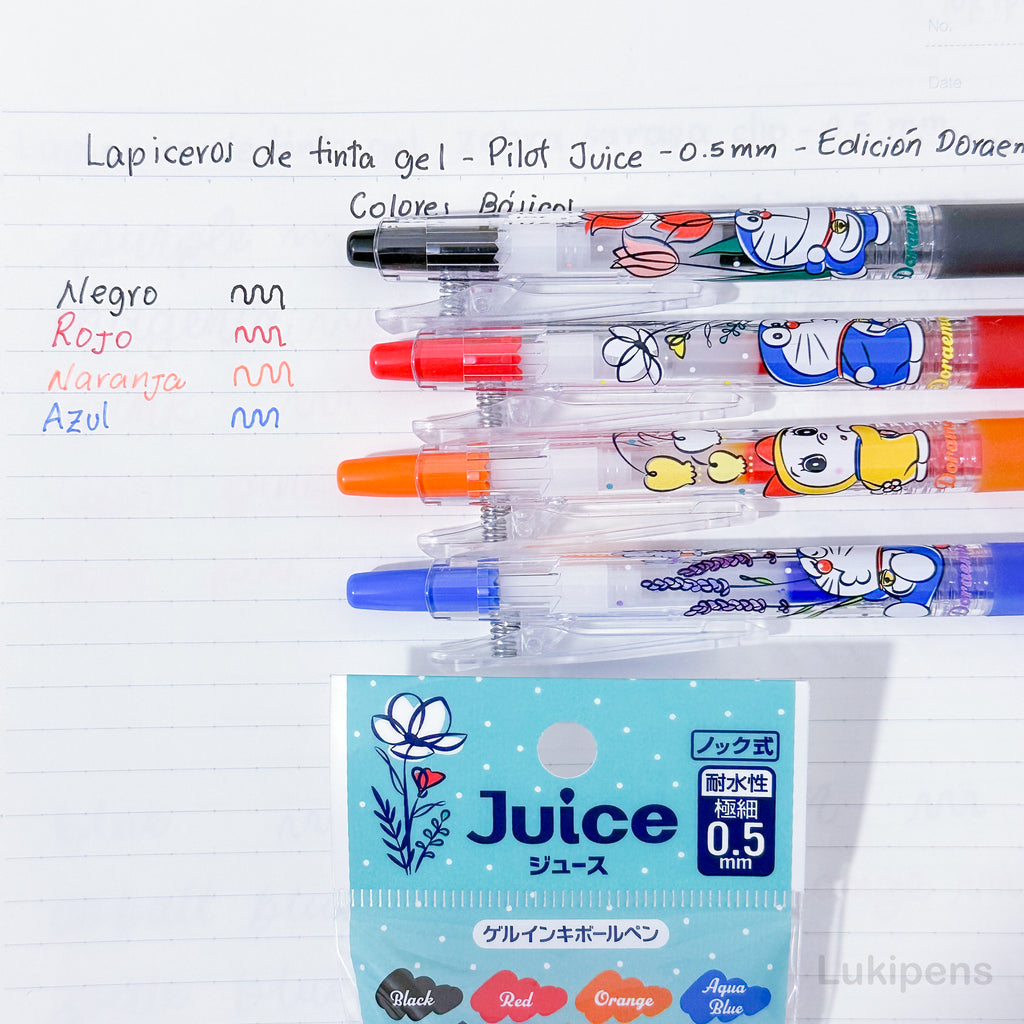 No.
Date
Lapiceros de tinta gel - Pilot Juice - 0.5mm - Edición Doraem
Colores Básicos
Negro
Rojo
Naranja
Azul
Doraemon
Doraemon
Doraemon
Doraemon
ノック式
耐水性
極細
0.5
mm
Juice
ジュース
ゲルインキボールペン
Black
Red
Orange
Aqua
Blue
Lukipens